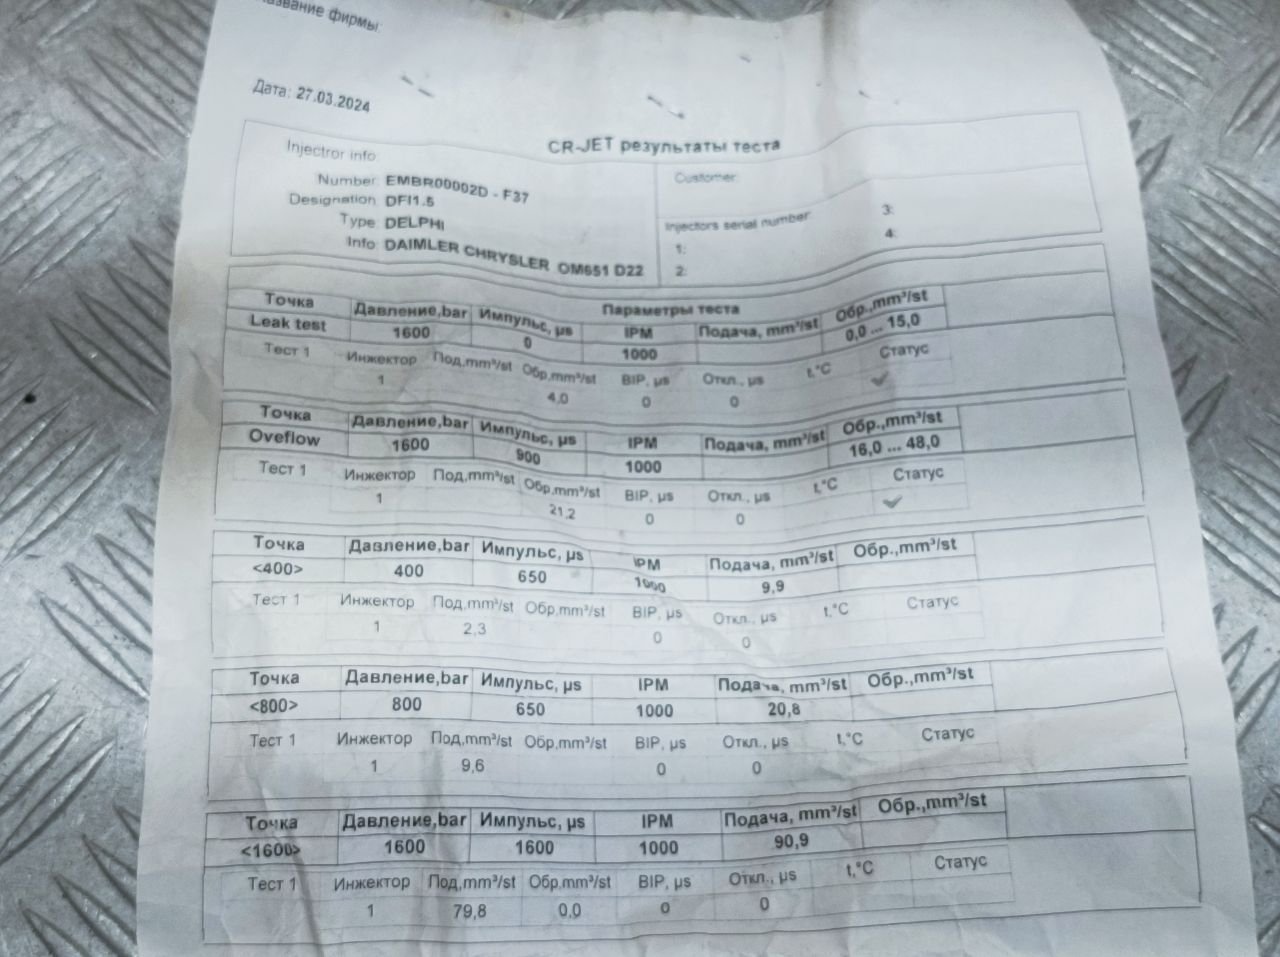 фирмы:
Дата: 27.03.2024
CR-JET результаты теста
Injectror info:
Number: EMBR00002D - F37
Designation: DFI1.5
Type: DELPHI
Info: DAIMLER CHRYSLER OM651 D22
Customer:
Injectors serial number
1:
2:
3:
4:
Параметры теста
Точка Давление,bar Импульс, µs IPM Подача, mm³/st Обр.,mm³/st
Leak test 1600 0 1000 0,0 ... 15,0
Тест 1 Инжектор Под,mm³/st Обр,mm³/st BIP, µs Откл., µs t,°C Статус
1 4,0 0 0 ✓
Точка Давление,bar Импульс, µs IPM Подача, mm³/st Обр.,mm³/st
Oveflow 1600 900 1000 16,0 ... 48,0
Тест 1 Инжектор Под,mm³/st Обр,mm³/st BIP, µs Откл., µs t,°C Статус
1 21,2 0 0 ✓
Точка Давление,bar Импульс, µs IPM Подача, mm³/st Обр.,mm³/st
<400> 400 650 1000 9,9
Тест 1 Инжектор Под,mm³/st Обр,mm³/st BIP, µs Откл., µs t,°C Статус
1 2,3 0 0
Точка Давление,bar Импульс, µs IPM Подача, mm³/st Обр.,mm³/st
<800> 800 650 1000 20,8
Тест 1 Инжектор Под,mm³/st Обр,mm³/st BIP, µs Откл., µs t,°C Статус
1 9,6 0 0
Точка Давление,bar Импульс, µs IPM Подача, mm³/st Обр.,mm³/st
<1600> 1600 1600 1000 90,9
Тест 1 Инжектор Под,mm³/st Обр,mm³/st BIP, µs Откл., µs t,°C Статус
1 79,8 0,0 0 0